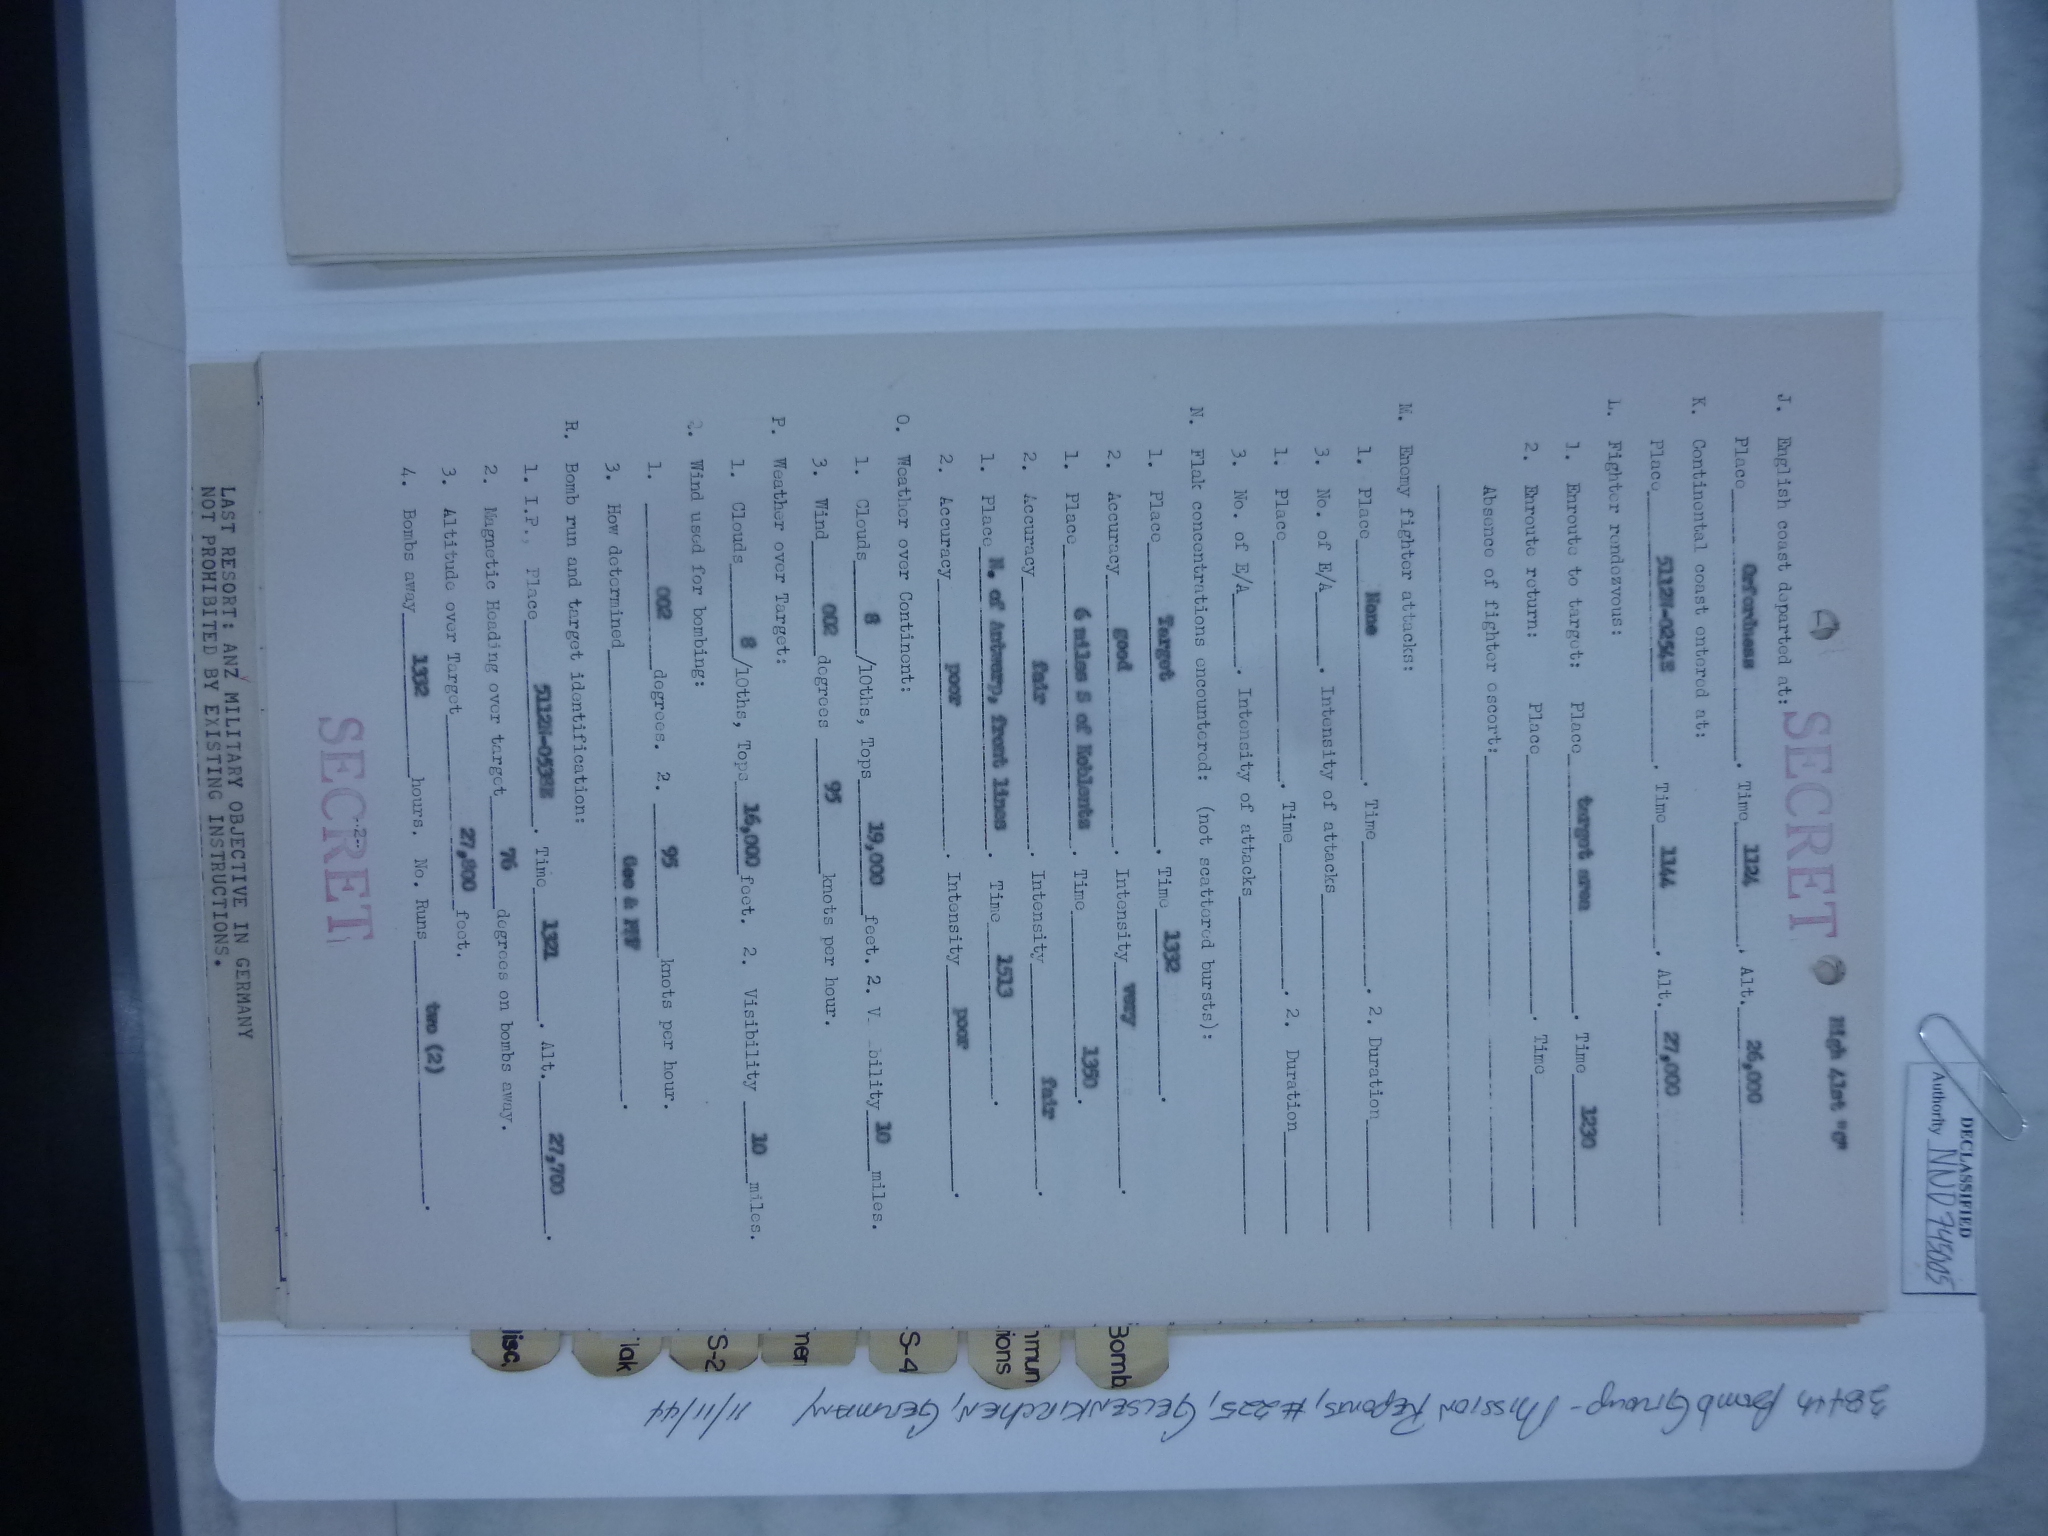 DECLASSIFIED
Authority NND 745005
SECRET
High 41st "C"
J. English coast departed at:
Place Orfordness. Time 1124. Alt. 26,000
K. Continental coast entered at:
Place 5112N-0254E. Time 1144. Alt. 27,000
L. Fighter rendezvous:
1. Enroute to target: Place target area. Time 1230
2. Enroute return: Place. Time
Absence of fighter escort:
M. Enemy fighter attacks:
1. Place None. Time. 2. Duration
3. No. of E/A. Intensity of attacks
1. Place. Time. 2. Duration
3. No. of E/A. Intensity of attacks
N. Flak concentrations encountered: (not scattered bursts):
1. Place Target. Time 1332.
2. Accuracy good. Intensity very.
1. Place 6 miles S of Koblentz. Time 1350.
2. Accuracy fair. Intensity fair.
1. Place N. of Antwerp, front lines. Time 1513.
2. Accuracy poor. Intensity poor.
O. Weather over Continent:
1. Clouds 8/10ths, Tops 19,000 feet. 2. V bility 10 miles.
3. Wind 002 degrees 95 knots per hour.
P. Weather over Target:
1. Clouds 8/10ths, Tops 16,000 feet. 2. Visibility 10 miles.
Q. Wind used for bombing:
1. 002 degrees. 2. 95 knots per hour.
3. How determined Gee &
R. Bomb run and target identification:
1. I.P., Place 5112N-0538E. Time 1321. Alt. 27,700.
2. Magnetic Heading over target 76 degrees on bombs away.
3. Altitude over Target 27,800 feet.
4. Bombs away 1332 hours. No. Runs two (2).
-2-
SECRET
LAST RESORT: ANY MILITARY OBJECTIVE IN GERMANY
NOT PROHIBITED BY EXISTING INSTRUCTIONS.
Bomb
mmun
ions
S-4
men
S-2
lak
lisc.
384th Bomb Group - Mission Reports, #225, Gelsenkirchen, Germany 11/11/44